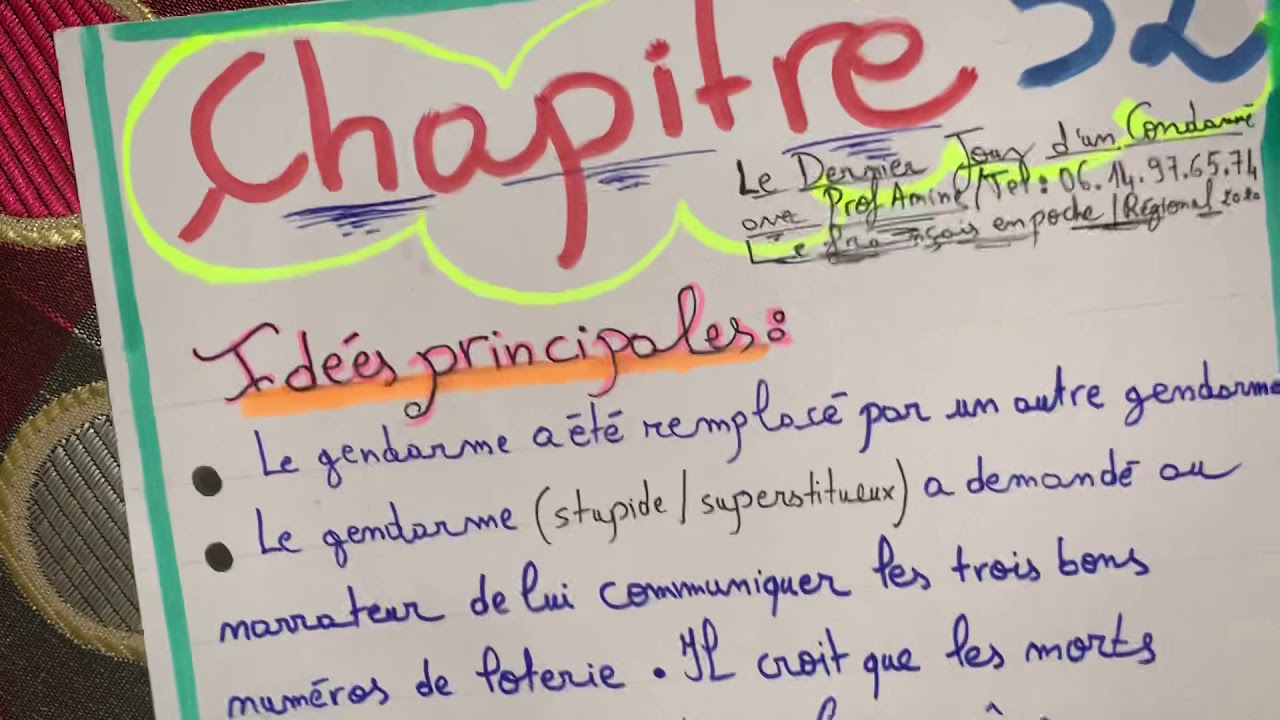 Chapitre 32
Le Dernier Jour d'un Condamné
avec Prof Amine / Tel : 06.14.97.65.74
Le français en poche / Régional 2020
Idées principales :
Le gendarme a été remplacé par un autre gendarme
Le gendarme (stupide / superstitueux) a demandé au
narrateur de lui communiquer les trois bons
numéros de loterie. Il croit que les morts